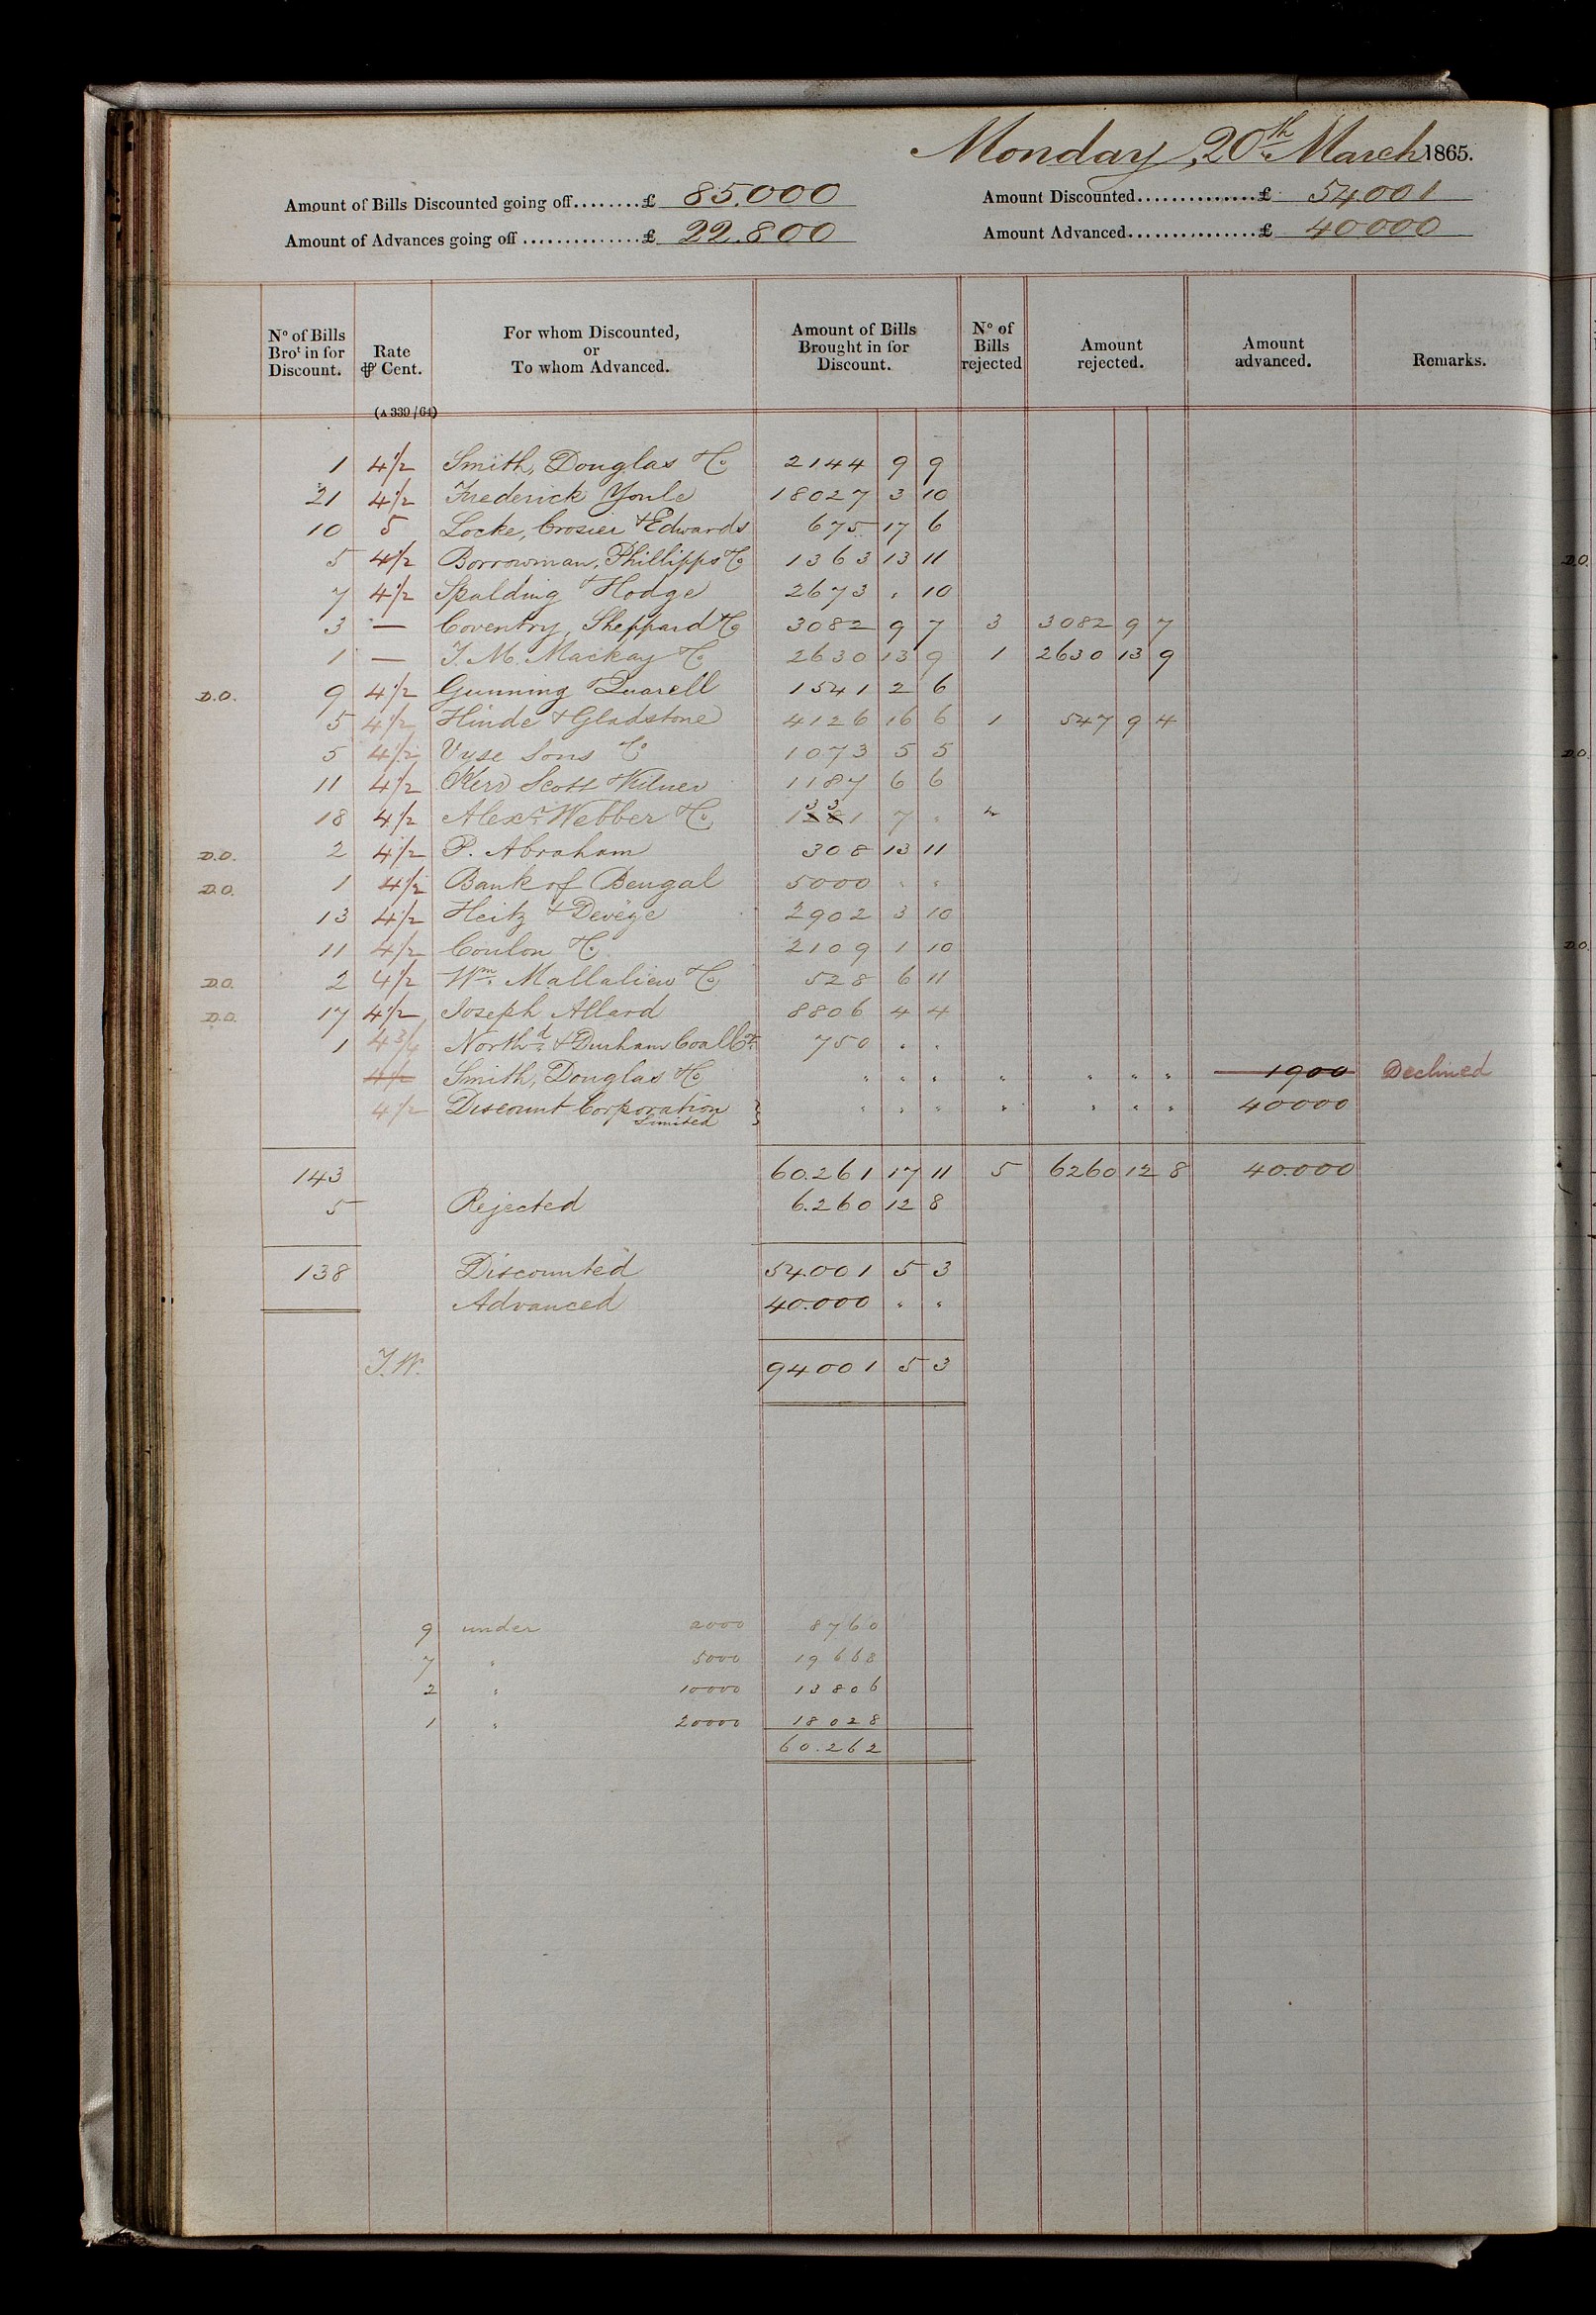 Monday, 20th March 1865.
Amount of Bills Discounted going off........£ 85.000 Amount Discounted...............£ 54001
Amount of Advances going off ...............£ 22.800 Amount Advanced................£ 40000
No of Bills Brot in for Discount. Rate ₱ Cent. For whom Discounted, or To whom Advanced. Amount of Bills Brought in for Discount. No of Bills rejected Amount rejected. Amount advanced. Remarks.
(A 339/64)
1 4½ Smith, Douglas & Co 2144 9 9
21 4½ Frederick Youle 18027 3 10
10 5 Locke, Crosier & Edwards 675 17 6
5 4½ Borrowman, Phillipps & Co 1363 13 11
7 4½ Spalding & Hodge 2673 " 10
3 — Coventry, Sheppard & Co 3082 9 7 3 3082 9 7
1 — T. M. Mackay & Co 2630 13 9 1 2630 13 9
D.O. 9 4½ Gunning & Quarell 1541 2 6
5 4½ Hinde & Gladstone 4126 16 6 1 547 9 4
5 4½ Vyse Sons & Co 1073 5 5
11 4½ Kerr Scott & Kilner 1187 6 6
18 4½ Alexr Webber & Co 1331 7 "
D.O. 2 4½ P. Abraham 308 13 11
D.O. 1 4½ Bank of Bengal 5000 " "
13 4½ Heitz & Devëge 2902 3 10
11 4½ Coulon & Co 2109 1 10
D.O. 2 4½ Wm. Mallalieu & Co 528 6 11
D.O. 17 4½ Joseph Allard 8806 4 4
1 4¾ Northd & Durham Coal Co 750 " "
4½ Smith, Douglas & Co " " " " " " " 1900 Declined
4½ Discount Corporation Limited } " " " " " " " 40000
143 60.261 17 11 5 6260 12 8 40.000
5 Rejected 6.260 12 8
138 Discounted 54.001 5 3
Advanced 40.000 " "
T.W. 94001 5 3
9 under 2000 8760
7 " 5000 19668
2 " 10000 13806
1 " 20000 18028
60.262
D.O.
D.O.
D.O.